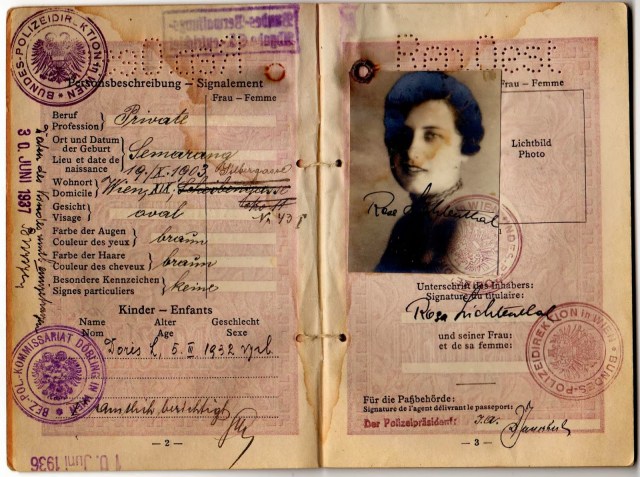 BUNDES-POLIZEIDIREKTION IN WIEN
Personsbeschreibung — Signalement
Frau – Femme
Beruf
Profession
Private
Ort und Datum
der Geburt
Lieu et date de
naissance
Semarang
19./IX. 1903
Wohnort
Domicile
Wien, XIX.
Silbergasse
Nr. 43
Gesicht
Visage
oval
Farbe der Augen
Couleur des yeux
braun
Farbe der Haare
Couleur des cheveux
braun
Besondere Kennzeichen
Signes particuliers
keine
Kinder – Enfants
Name
Nom
Alter
Age
Geschlecht
Sexe
Doris L. 5. II 1932
amtlich berichtigt
– 2 –
30. JUNI 1937
BEZ.-POL-KOMMISSARIAT DÖBLING IN WIEN
Juni 1936
Frau – Femme
Lichtbild
Photo
Rosa Lichtenthal
Unterschrift des Inhabers:
Signature du titulaire:
Rosa Lichtenthal
und seiner Frau:
et de sa femme:
BUNDES-POLIZEIDIREKTION IN WIEN
Für die Paßbehörde:
Signature de l'agent délivrant le passeport:
Der Polizeipräsident:
I.A.
– 3 –